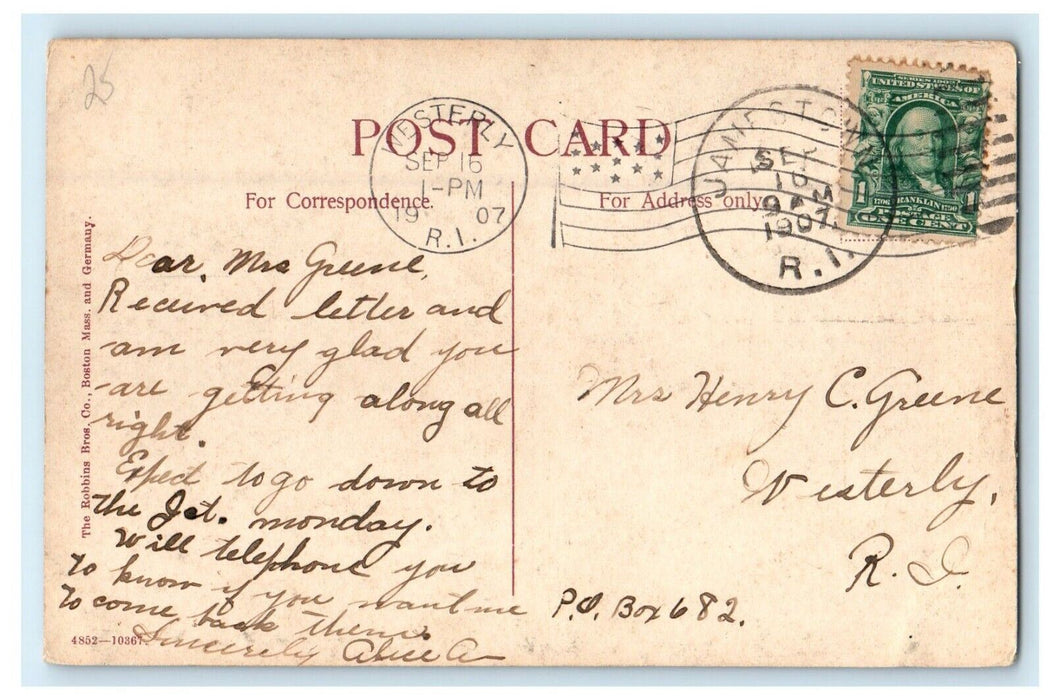 25
POST CARD
For Correspondence.
For Address only.
WESTERLY
SEP 16
1-PM
19 07
R.I.
JAMESTOWN
SEP
16
9 AM
1907
R.I.
SERIES 1902
UNITED STATES OF
AMERICA
1706 FRANKLIN 1790
POSTAGE
1 ONE CENT
The Robbins Bros. Co., Boston Mass. and Germany.
Dear, Mrs Greene,
Received letter and
am very glad you
are getting along all
right.
Expect to go down to
the Jct. monday.
Will telephone you
to know if you want me
to come back then.
Sincerely Alice A
4852—10367.
Mrs Henry C. Greene
Westerly,
R. I.
P.O. Box 682.